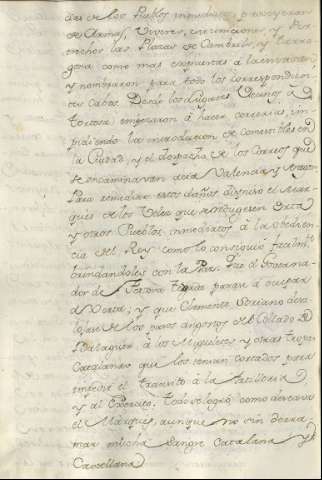 des de los Pueblos inmediatos, proveyeron
de Armas, Viveres, y municiones, y
las Plazas de Cambrils, y Tarra-
gona como mas expuestas á la invasion,
y nombraron para todo los correspondien-
tes Cabos. Desde los Lugares Vecinos á
Tortosa empezaron á hacer correrias, im-
pidiendo la introduccion de comestibles en
la Ciudad, y el despacho de los Correos que
se encaminavan acia Valencia, y Aragon.
Para remediar estos daños dispuso el Mar-
qués de los Velez que se redugesen Xerta
y otros Pueblos inmediatos á la obedien-
cia del Rey como lo consiguió facilmte
brindandoles con la Paz. Fue el Governa-
dor de Tortosa para á ocupar
á Xerta; y que Clemente Soriano desa
lojase de los pasos angostos del Collado de
Balaguer á los Migueletes y otras tropas
Catalanas que los tenian cortados para
impedir el transito á la Artilleria
y al Exercito. Todo se logró como deseava
el Marqués, aunque no sin derra-
mar mucha Sangre Catalana y
Castellana